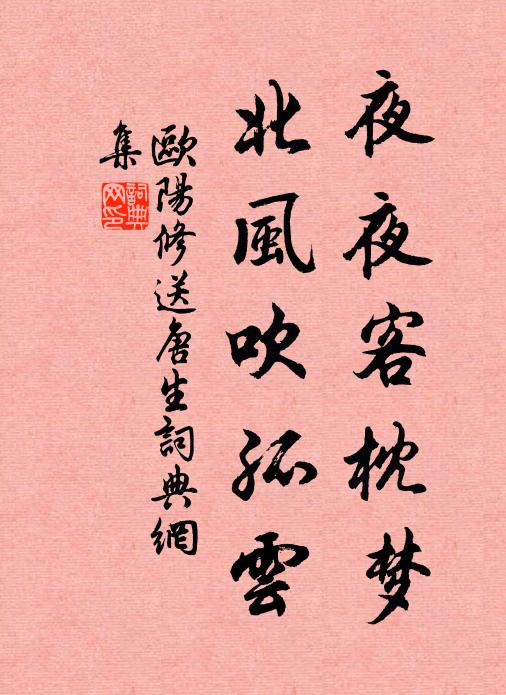 夜夜客枕梦
北風吹孤雲
歐陽修送唐生詞典網
集
詞典网印